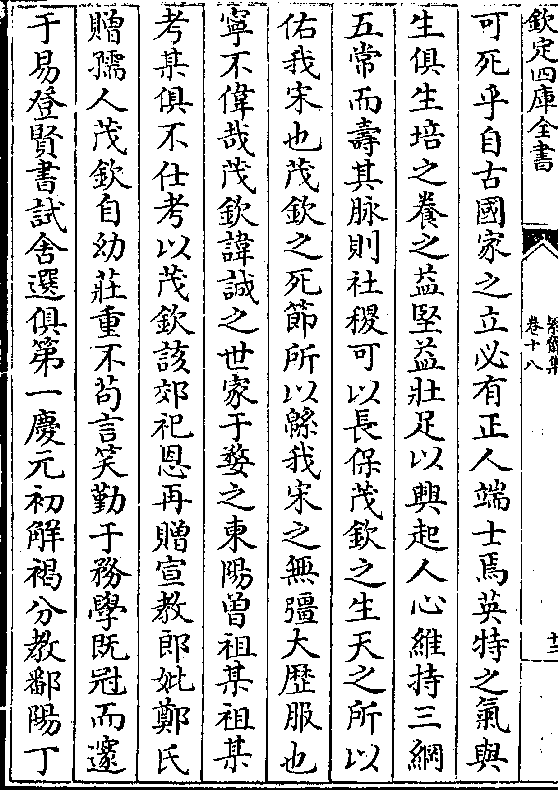 欽定四庫全書
卷十八
可死乎自古國家之立必有正人端士焉英特之氣與
生俱生培之養之益堅益壯足以興起人心維持三綱
五常而壽其脉則社稷可以長保茂欽之生天之所以
佑我宋也茂欽之死節所以緜我宋之無彊大歴服也
寧不偉哉茂欽諱誠之世家于婺之東陽曾祖某祖某
考某俱不仕考以茂欽該郊祀恩再贈宣教郎妣鄭氏
贈孺人茂欽自幼莊重不茍言笑勤于務學既冠而邃
于易登賢書試舍選俱第一慶元初解褐分教鄱陽丁